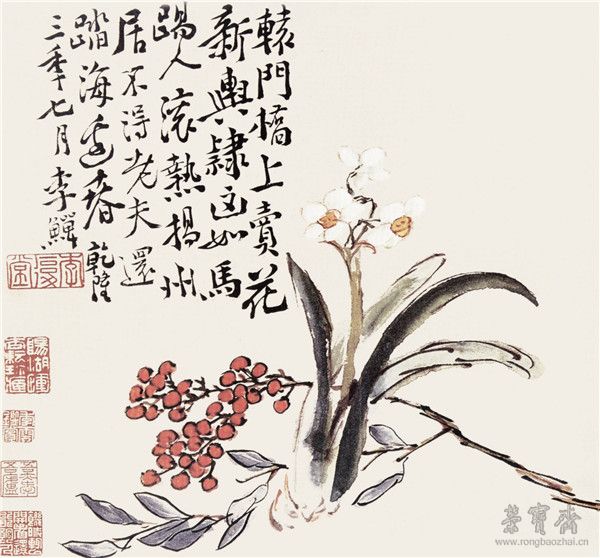 轅門橋上賣花
新輿隸凶如馬
踢人滚熱揚州
居不得老夫還
踏海邊春乾隆
三年七月李鱓
李復堂
榮寶齋
www.rongbaozhai.cn